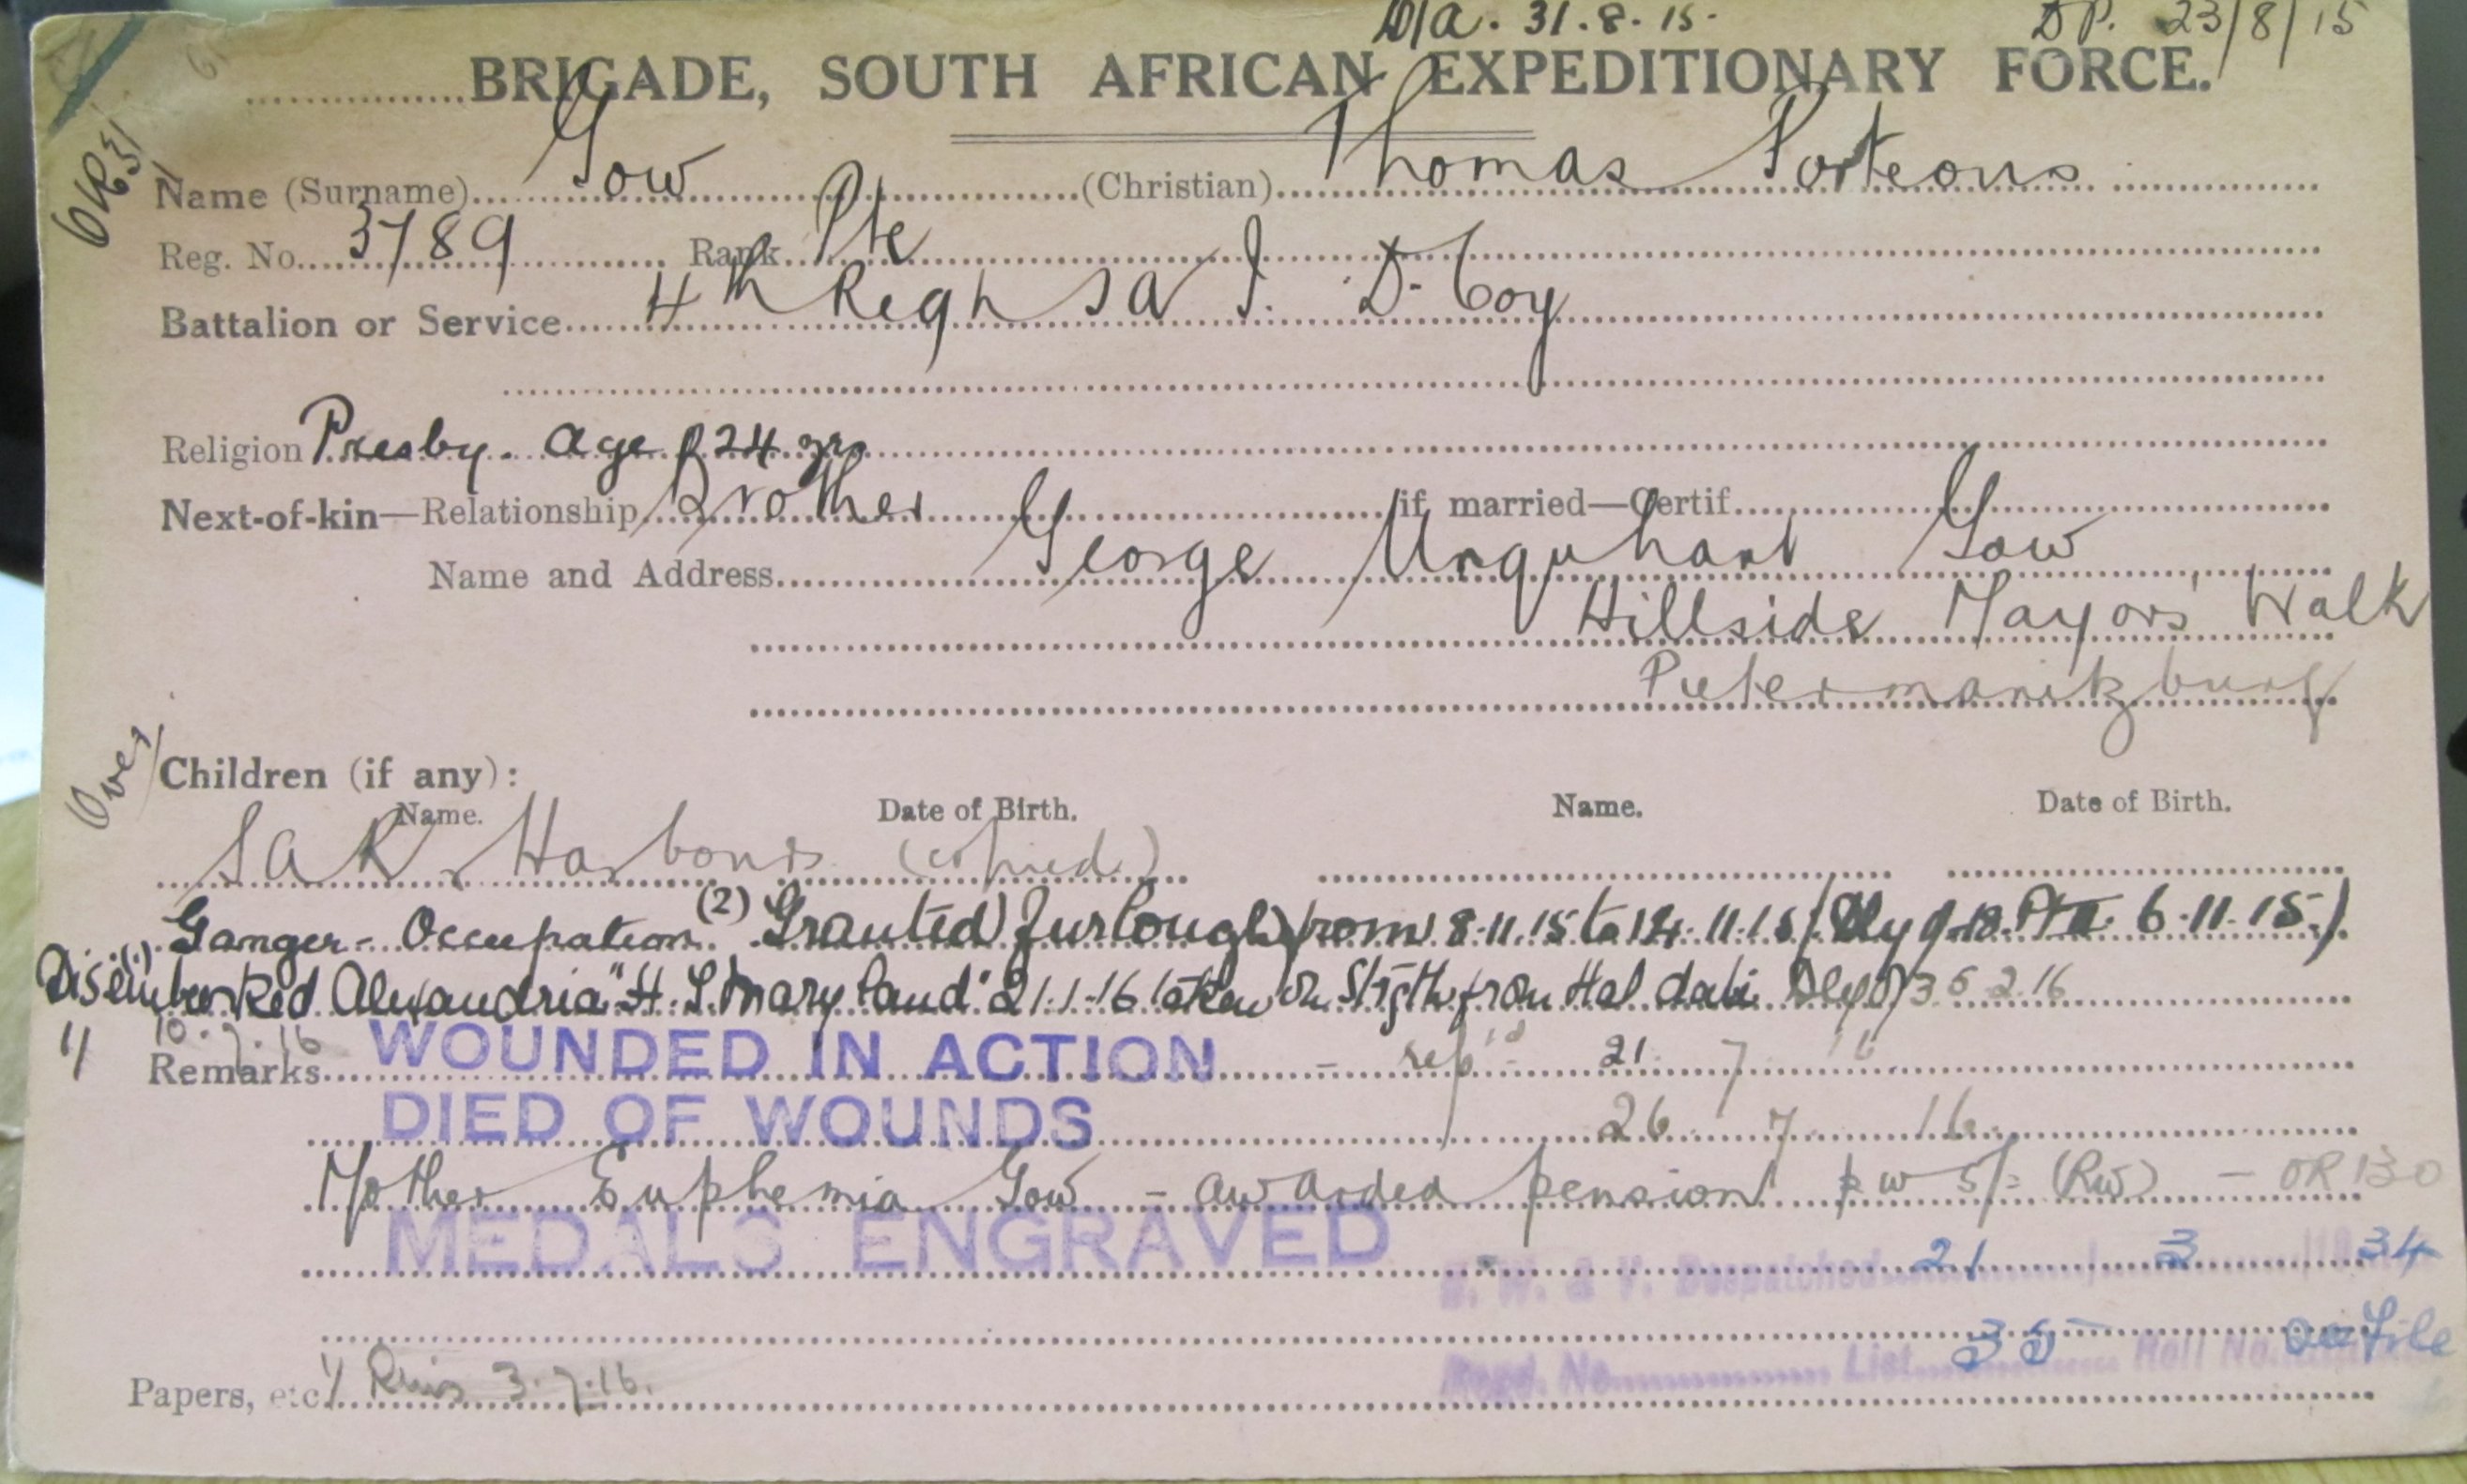 D/a. 31.8.15. DP. 23/8/15
BRIGADE, SOUTH AFRICAN EXPEDITIONARY FORCE.
Name (Surname) Gow (Christian) Thomas Porteous
Reg. No. 3789 Rank Pte
Battalion or Service 4th Regt S A I. D. Coy
Religion Presby. age 24 yrs
Next-of-kin—Relationship Brother if married—Certif.
Name and Address George Urquhart Gow
Hillside Mayors Walk
Pietermaritzburg
Over
Children (if any):
Name. Date of Birth. Name. Date of Birth.
S A R Harbours (copied)
(1) Ganger - Occupation (2) Granted furlough from 8.11.15 to 14.11.15 6.11.15)
Disembarked Alexandria "H.S. Maryland" 21.1.16 taken on Stgth from 5.2.16
10.7.16
Remarks WOUNDED IN ACTION - rep'd - 21 7 16
DIED OF WOUNDS 26 7 16
Mother Euphemia Gow - awarded pension p w 5/= (Rw) - OR 130
MEDALS ENGRAVED
B. W. & V. Despatched 21 3 34
Regd. No. List 35 Roll No. on File
Papers, etc. 3.7.16.